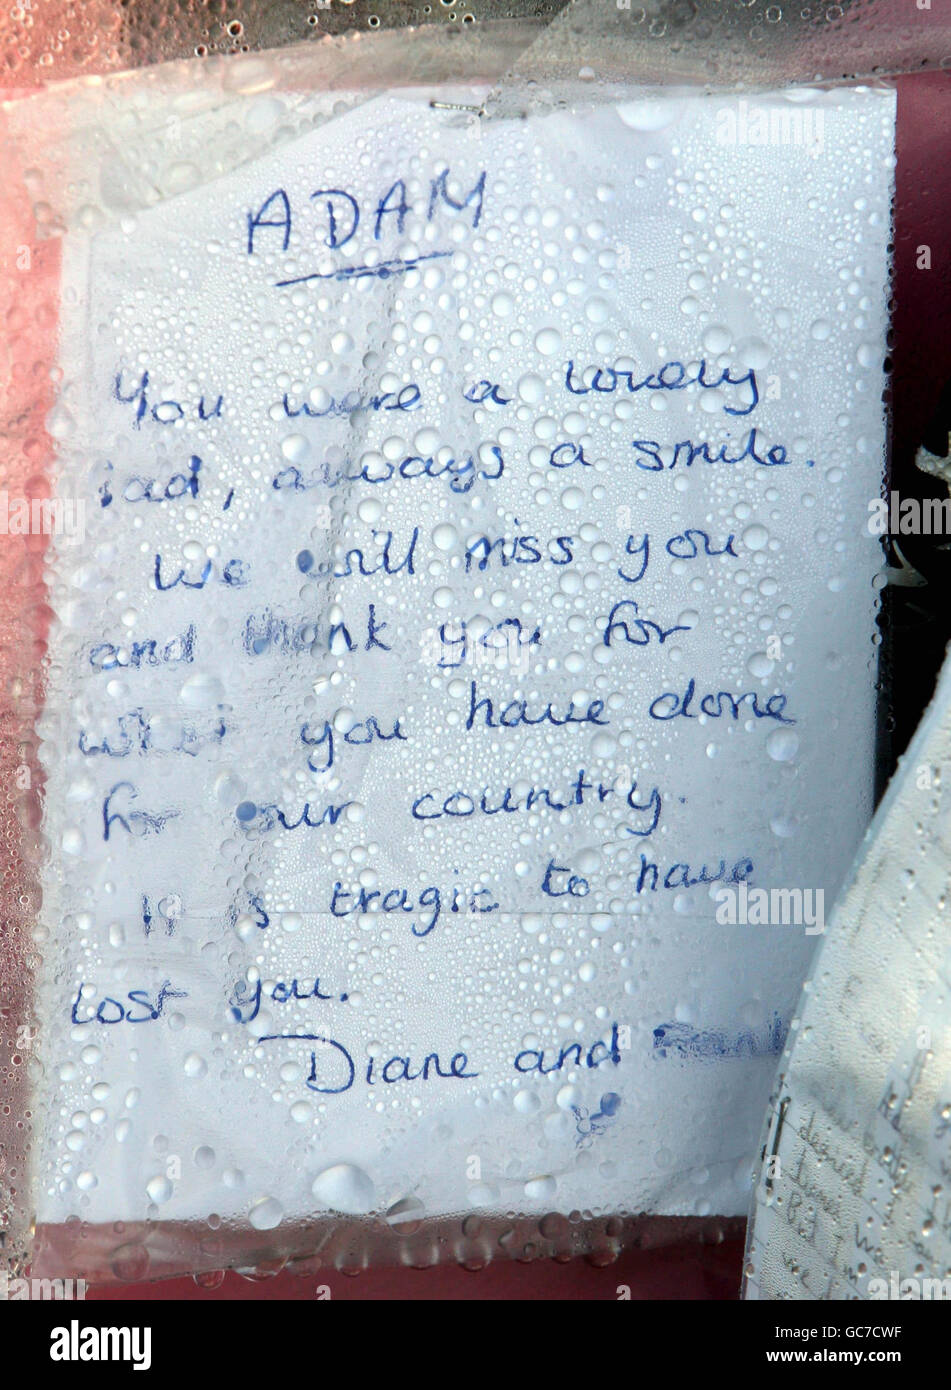 ADAM
You were a lovely
lad, always a smile.
We will miss you
and thank you for
what you have done
for our country.
It is tragic to have
lost you.
Diane and Frank
alamy stock photo
Image ID: GC7CWF
www.alamy.com